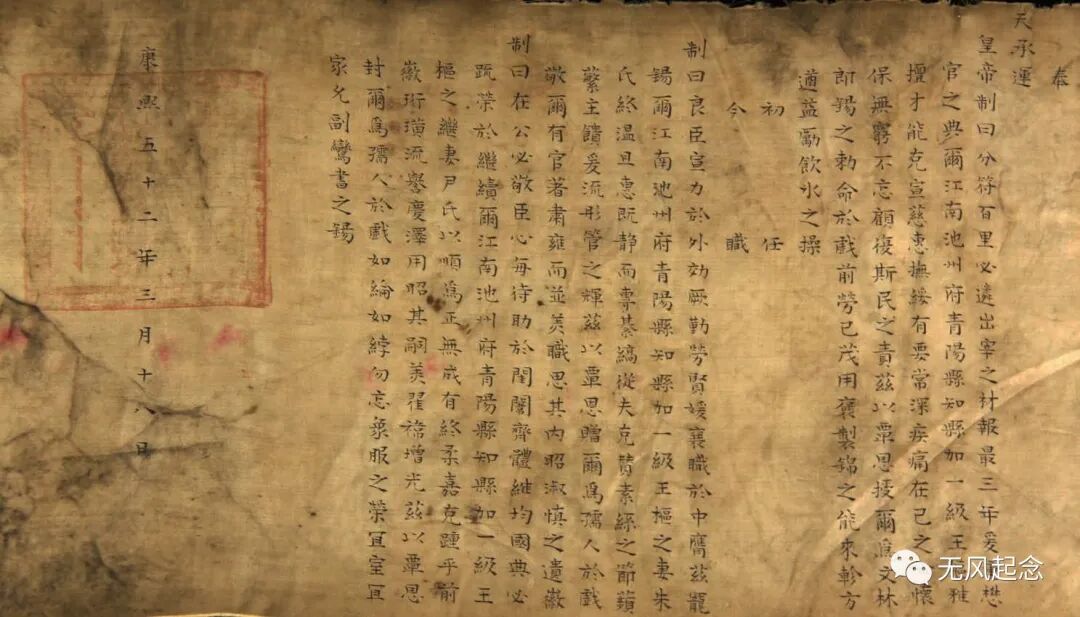 奉
天承運
皇帝制曰分符百里必遴出宰之材報最三年爰懋
官之典爾江南池州府青陽縣知縣加一級王雅
擅才能克宣慈惠撫綏有要常深疾痛在己之懷
保無窮不忘顧復斯民之責茲以覃恩授爾爲文林
郎錫之勅命於戲前勞已茂用褒製錦之能來軫方
遒益勵飲氷之操
初任
今職
制曰良臣宣力於外効厥勤勞賢媛襄職於中膺茲寵
錫爾江南池州府青陽縣知縣加一級王樞之妻朱
氏終溫且惠既静而專綦縞從夫克贊素絲之節蘋
蘩主饋爰流彤管之輝茲以覃恩贈爾爲孺人於戲
敬爾有官著肅雍而並美職思其內昭淑慎之遺徽
制曰在公必敬臣心每待助於閨閫齊體維均國典必
疏榮於繼續爾江南池州府青陽縣知縣加一級王
樞之繼妻尹氏以順爲正無成有終柔嘉克踵乎前
徽珩璜流譽慶澤用昭其嗣美翟褕增光茲以覃恩
封爾爲孺人於戲如綸如綍勿忘象服之榮宜室宜
家允副鸞書之錫
康熙五十二年三月十八日
无风起念